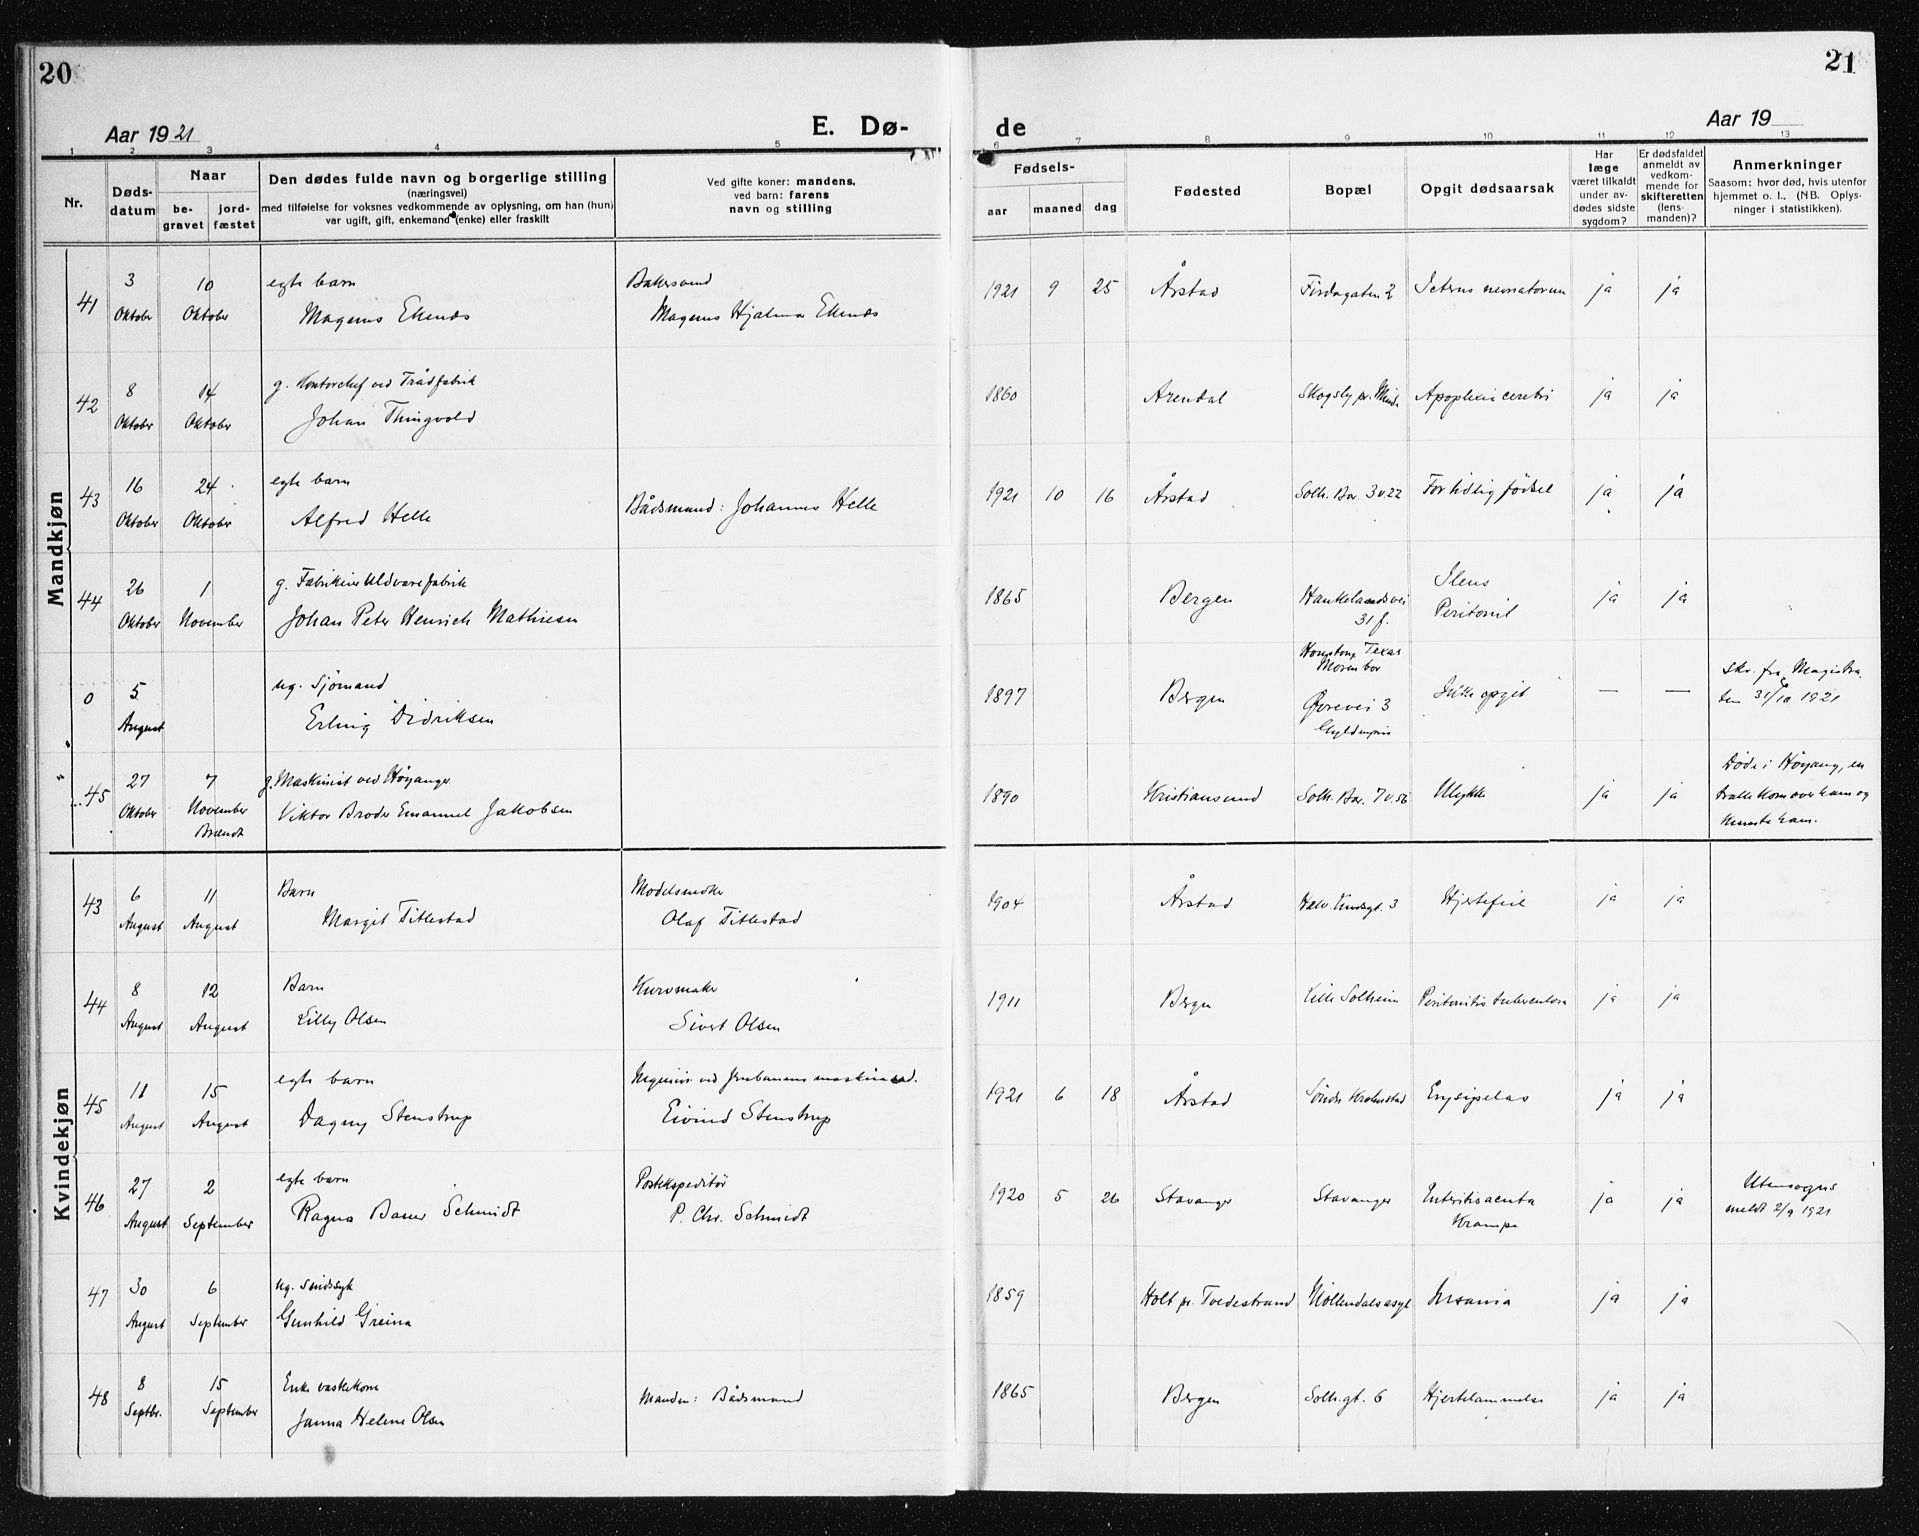 20
21
Aar 1921
E. Dø-
de
Aar 19
1 2 3 4 5 6 7 8 9 10 11 12 13
Nr.
Døds-
datum
Naar
be-
gravet
jord-
fæstet
Den dødes fulde navn og borgerlige stilling
(næringsvei)
med tilføielse for voksnes vedkommende av oplysning, om han (hun)
var ugift, gift, enkemand (enke) eller fraskilt
Ved gifte koner: mandens,
ved barn: farens
navn og stilling
Fødsels-
aar maaned dag
Fødested
Bopæl
Opgit dødsaarsak
Har
læge
været tilkaldt
under av-
dødes sidste
sygdom?
Er dødsfaldet
anmeldt av
vedkom-
mende for
skifteretten
(lens-
manden)?
Anmerkninger
Saasom: hvor død, hvis utenfor
hjemmet o. l., (NB. Oplys-
ninger i statistikken).
Mandkjøn
3 10 egte barn
41 Oktober Oktober Magnus Ekenæs Magnus Hjalmar Ekenæs 1921 9 25 Årstad Fjordagaten 2 Icterus neonatorum ja ja
8 14 g. Kontorchef ved Trådfabrik
42 Oktober Oktober Johan Thingvold 1860 Arendal Skogsly pr. Minde Apoplexia cerebri ja ja
16 24 egte barn
43 Oktober Oktober Alfred Helle Bådsmand: Johannes Helle 1921 10 16 Årstad Solh. Bar. 3 v 22 For tidlig fødsel ja ja
26 1 g. Fabrikeier Uldvarefabrik Ileus
44 Oktober November Johan Peter Henrich Mathiesen 1865 Bergen Haukelandsvei Peritonit ja ja
31 f.
Houston, Texas
5 ug. Sjømand
0 August Erling Didriksen 1897 Bergen Moren bor Ikke opgit — — skr. fra Magistra.
Øvrevei 3 den 31/10 1921
Gyldenpris
27 7 g. Maskinist ved Høyanger Døde i Høyang, en
45 Oktober November Viktor Broder Emanuel Jakobsen 1890 Kristiansund Solh. Bar. 7 v. 56 Ulykke ja ja tralle kom over ham og
Brændt knuste ham.
Kvindekjøn
6 11 Barn
43 August August Margit Titlestad Olaf Titlestad 1904 Årstad 3 Hjertefeil ja ja
8 12 Barn Kurvmaker
44 August August Lilly Olsen Sivert Olsen 1911 Bergen Lille Solheim Peritonitis tuberculosa ja ja
11 15 egte barn Ingeniør ved Jernbanens
45 August August Dagny Stenstrup Eivind Stenstrup 1921 6 18 Årstad Søndre Kronstad Erysipelas ja ja
27 2 egte barn Postekspeditør Utensogns
46 August September Ragna Bauer Schmidt P. Chr. Schmidt 1920 5 26 Stavanger Stavanger Enteritis acuta ja ja meldt 2/9 1921
Krampe
30 6 ug. Sindssyk
47 August September Gunhild Greina 1859 Holt pr. Tvedestrand Møllendalsasyl Insania ja ja
8 15 Enke vaskekone
48 Septbr. September Janna Helene Olsen Manden: Bådsmand 1865 Bergen Solh.gt. 6 Hjertelammelse ja ja